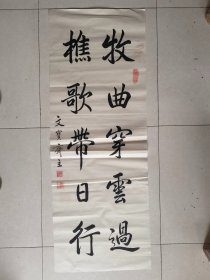 牧曲穿雲過
樵歌帶日行